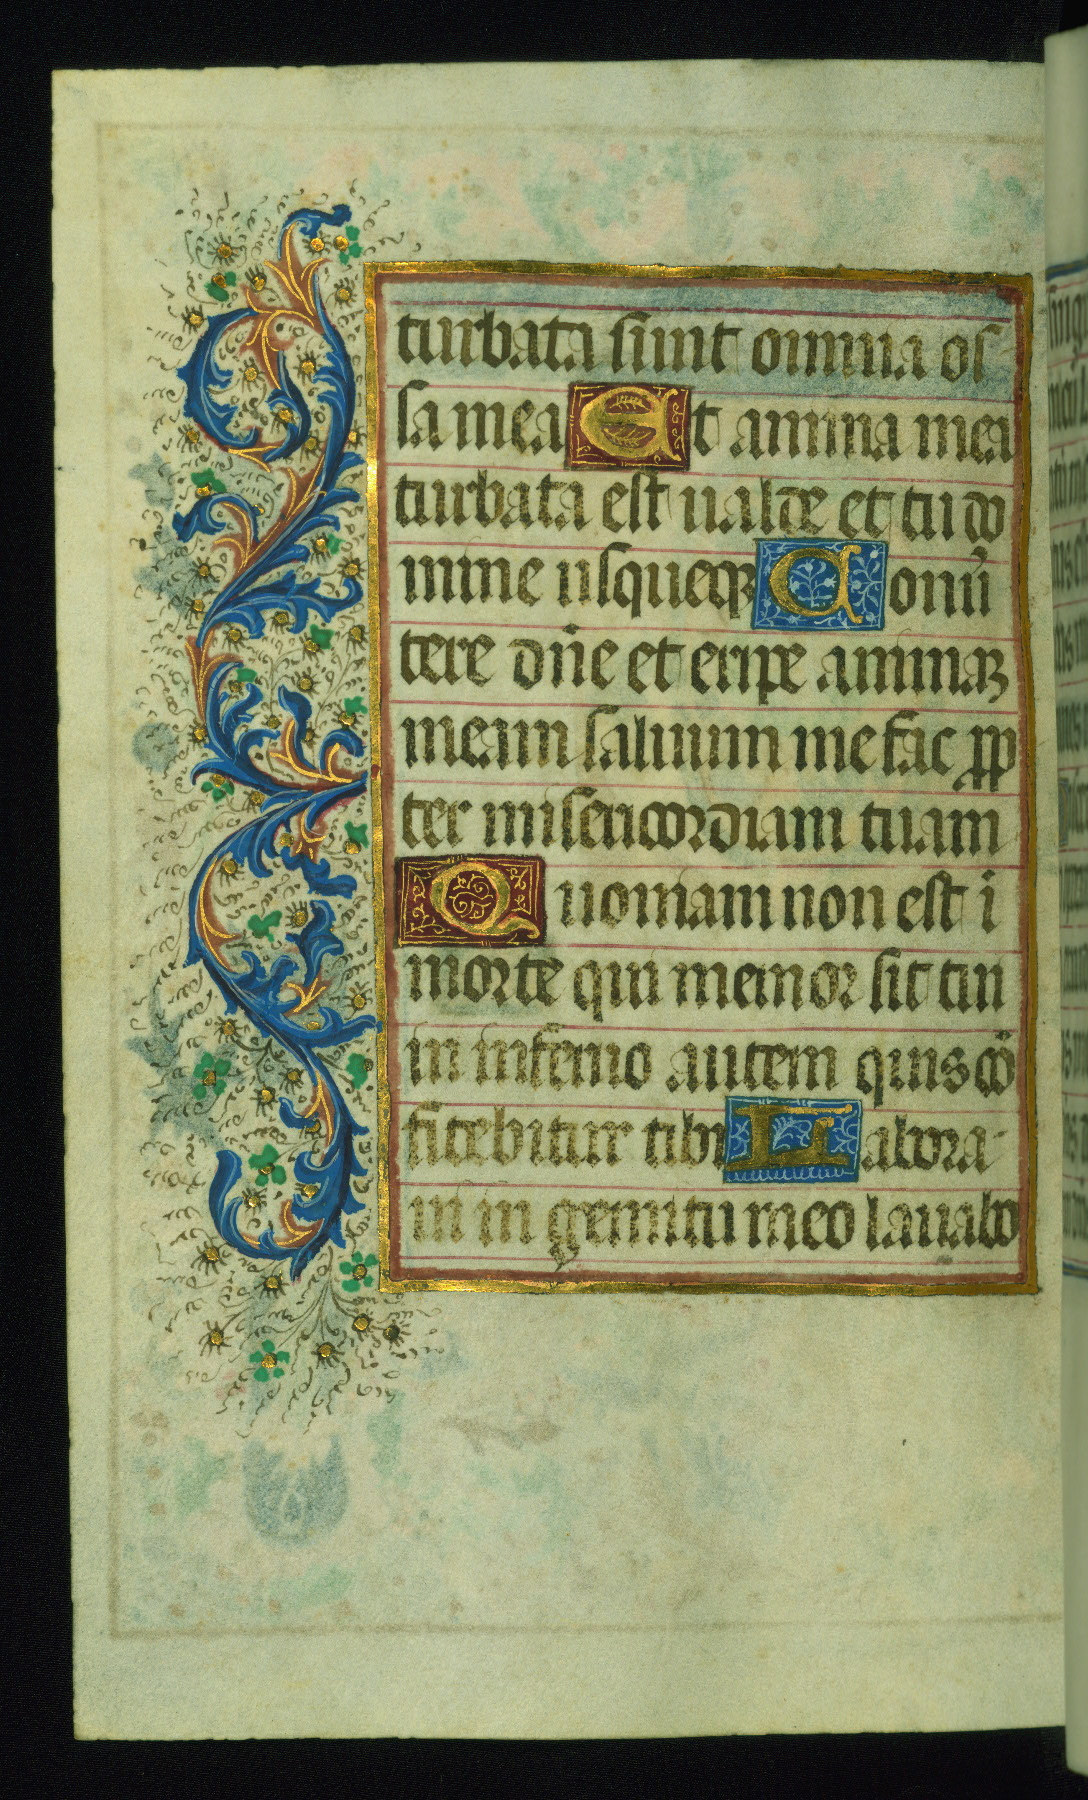 turbata sunt omnia os
sa mea Et anima mea
turbata est ualde et tu do
mine usquequ Conū
tere dñe et eripe animaꝫ
meam saluum me fac ꝓp
ter misericordiam tuam
Quoniam non est ī
morte qui memor sit tui
in inferno autem quis cō
fitebitur tibi Labora-
ui in gemitu meo lauabo